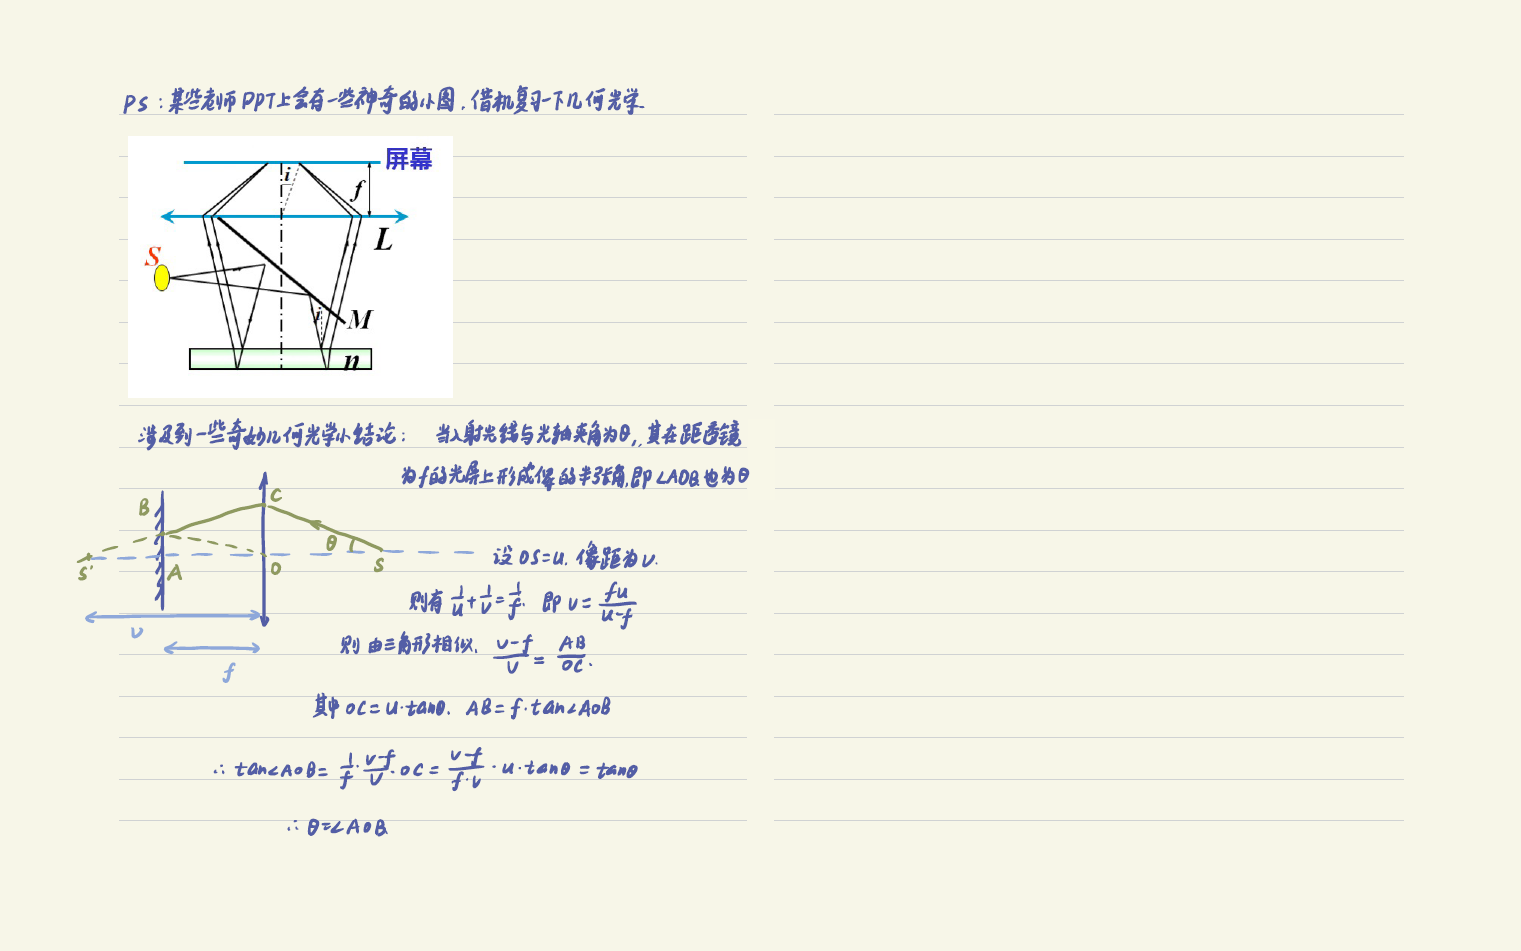 PS:某些老师PPT上会有一些神奇的小图,借机复习一下几何光学
屏幕
i
f
L
S
i
M
n
涉及到一些奇妙几何光学小结论: 当入射光线与光轴夹角为θ,其在距透镜
为f的光屏上形成像的半张角,即∠AOB也为θ
B
C
θ
S'
A
O
S
设OS=u.像距为v.
则有 1/u+1/v=1/f. 即 v=fu/(u-f)
v
则由三角形相似. (v-f)/v=AB/OC.
f
其中OC=u·tanθ. AB=f·tan∠AOB
∴ tan∠AOB=1/f·(v-f)/v·OC=(v-f)/(f·v)·u·tanθ=tanθ
∴ θ=∠AOB